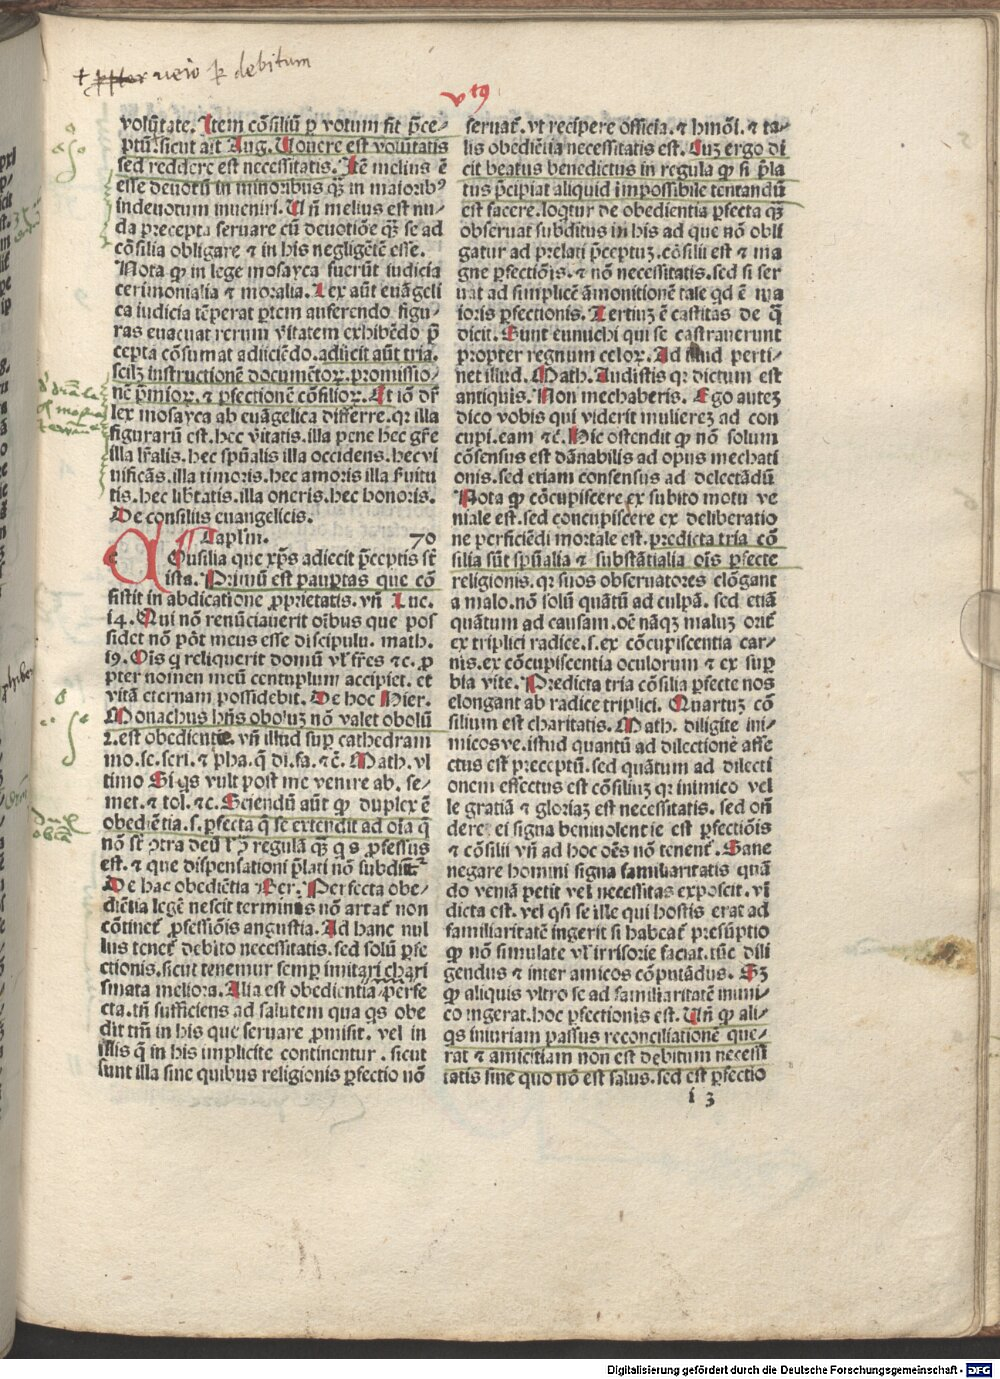 debitum
volūtate. Item cōsiliū ꝑ votum fit p̄ce⸗
ptū. sicut ait Aug. Uouere est volūtatis
sed reddere est necessitatis. Itē melius ē
esse deuotū in minoribus qȝ in maioribꝰ
indeuotum inueniri. Ul ñ melius est nu⸗
da precepta seruare cū deuotiōe qȝ se ad
cōsilia obligare ⁊ in his negligētē esse.
Nota ꝙ in lege mosayca fuerūt iudicia
cerimonialia ⁊ moralia. Lex aūt euāgeli
ca iudicia tēperat ꝑtem auferendo figu⸗
ras euacuat rerum v̄itatem exhibēdo p̄
cepta cōsumat adiiciēdo. adiicit aūt tria.
scilȝ instructionē documētoꝝ. promissio⸗
nē p̄mioꝝ. ⁊ ꝑfectionē cōsilioꝝ. Et iō dr̄
lex mosayca ab euāgelica differre. qꝛ illa
figurarū est. hec v̄itatis. illa pene hec gr̄e
illa lr̄alis. hec spūalis illa occidens. hec vi
uificās. illa timoris. hec amoris illa ẜuitu
tis. hec lib̄tatis. illa oneris. hec honoris.
De consiliis euangelicis.
Caplm. 70
COnsilia que xp̄s adiecit p̄ceptis sr̄
ista. Primū est paupꝑtas que cō
sistit in abdicatione ꝓprietatis. vñ Luc.
14. Qui nō renūciauerit oībus que pos
sidet nō pōt meus esse discipulꝰ. math.
19. Oīs q̇ reliquerit domū vl̓ fr̄es ⁊c. ꝓ
pter nomen meū centuplum accipiet. et
vitā eternam possidebit. De hoc Hier.
Monachus hn̄s oboluȝ nō valet obolū
2. est obedientie. vñ illud suꝑ cathedram
mo. se. scri. ⁊ pha. q̄ di. fa. ⁊c̄. Math. vl
timo Si qs vult post me venire ab. se⸗
met. ⁊ tol. ⁊c. Sciendū aūt ꝙ duplex ē
obediētia. s. ꝑfecta q̄ se extendit ad oīa q̄
nō st̄ ↄtra deū vꝉ regulā qȝ qs ꝓfessus
est. ⁊ que dispensationi p̄lati nō subdit᷑.
De hac obediētia Ber. Perfecta obe⸗
diētia legē nescit terminis nō artat᷑ non
cōtinet᷑ ꝓfessiōis angustia. Ad hanc nul
lus tenet᷑ debito necessitatis. sed solū ꝑfe
ctionis. sicut tenemur semꝑ imitari chari
smata meliora. Alia est obedientia ꝑerfe
cta. tn̄ sufficiens ad salutem qua qs obe
dit tm̄ in his que seruare ꝓmisit. vel in
illis q̄ in his implicite continentur. sicut
sunt illa sine quibus religionis ꝑfectio nō
seruat᷑. vt recipere officia. ⁊ hmōi. ⁊ ta⸗
lis obediētia necessitatis est. Cuȝ ergo di
cit beatus benedictus in regula ꝙ si p̄la
tus p̄cipiat aliquid impossibile tentandū
est facere. loqtur de obedientia ꝑfecta qȝ
obseruat subditus in his ad que nō obli
gatur ad prelati p̄ceptuȝ. cōsilii est ⁊ ma
gne ꝑfectiōis. ⁊ nō necessitatis. sed si ser
uat ad simplicē āmonitionē tale qd ē ma
ioris ꝑfectionis. Tertiuȝ ē castitas de q̄
dicit. Sunt eunuchi qui se castrauerunt
propter regnum celoꝝ. Ad illud perti⸗
net illud. Math. Audistis qꝛ dictum est
antiquis. Non mechaberis. Ego auteȝ
dico vobis qui viderit muliereȝ ad con
cupi. eam ⁊c̄. Hic ostendit ꝙ nō solum
cōsensus est dānabilis ad opus mechati
onis. sed etiam consensus ad delectādū
Nota ꝙ cōcupiscere ex subito motu ve
niale est. sed concupiscere ex deliberatio
ne perficiēdi mortale est. predicta tria cō
silia sūt spūalia ⁊ substātialia oīs ꝑfecte
religionis. qꝛ suos obseruatores elōgant
a malo. nō solū quātū ad culpā. sed etiā
quātum ad causam. oē nāqȝ maluȝ orit᷑
ex triplici radice. s. ex cōcupiscentia car⸗
nis. ex cōcupiscentia oculorum ⁊ ex suꝑ
bia vite. Predicta tria cōsilia ꝑfecte nos
elongant ab radice triplici. Quartuȝ cō
silium est charitatis. Math. diligite ini⸗
micos vr̄os. istud quantū ad dilectionē affe
ctus est preceptū. sed quātum ad dilecti
onem effectus est cōsiliuȝ qꝛ inimico vel
le gratiā ⁊ gloriaȝ est necessitatis. sed osten
dere ei signa beniuolentie est ꝑfectiōis
⁊ cōsilii vñ ad hoc oēs nō tenent᷑. Sane
negare homini signa familiaritatis quā
do veniā petit vel necessitas exposcit. vi
dicta est. vel qsi se ille qui hostis erat ad
familiaritatē ingerit si habeat᷑ presūptio
ꝙ nō simulate vl̓ irrisorie faciat. tūc dili
gendus ⁊ inter amicos cōputādus. Sȝ
ꝙ aliquis vltro se ad familiaritatē inimi⸗
co ingerat. hoc ꝑfectionis est. Uñ ꝙ ali⸗
qs iniuriam passus reconciliationē que⸗
rat ⁊ amicitiam non est debitum necessi
tatis sine quo nō est salus. sed est ꝑfectio
i 3
Digitalisierung gefördert durch die Deutsche Forschungsgemeinschaft - DFG